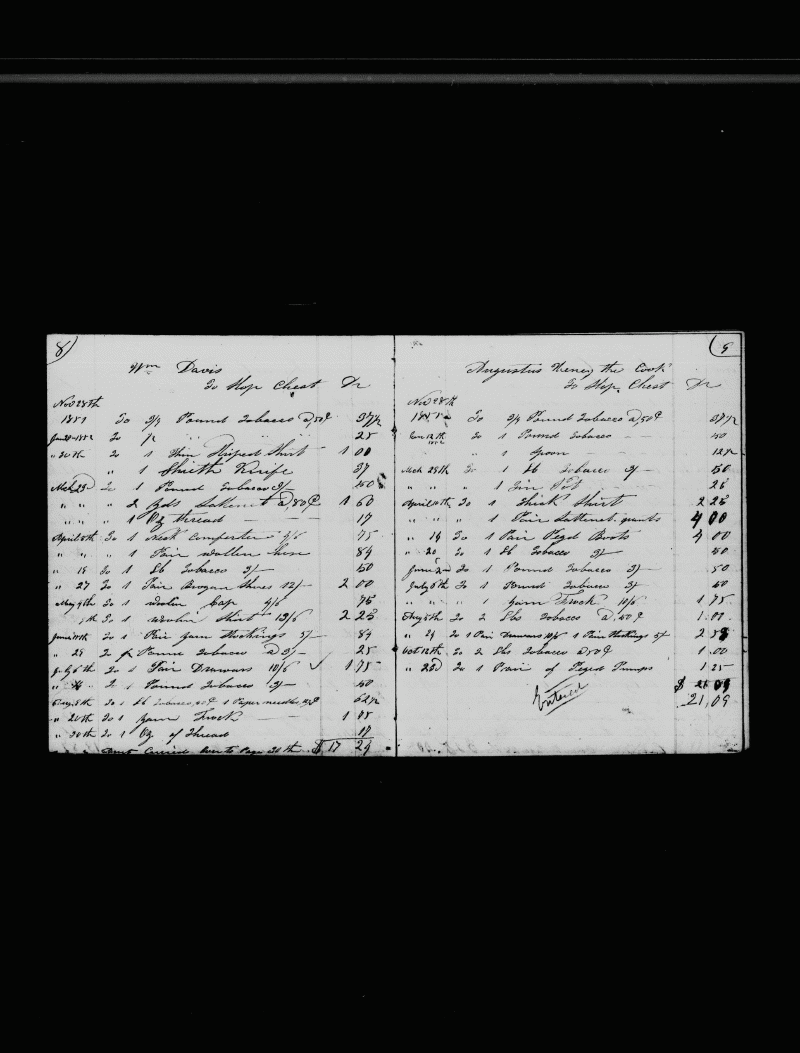 8
Wm Davis
To Slop Chest Dr
Nov 28th
1851 To 3/4 Pound Tobacco @ 50¢ 37 1/2
Jan 20 1852 To 1/2 " " " 25
" 30th To 1 Thin Striped Shirt 1 00
" 1 Sheath Knife 37
Mch 23 To 1 Pound Tobacco 3/- 50
" " " 2 yds Sattenet @ 80¢ 1 60
" " " 1 Oz thread 17
April 8th To 1 Neck Comforter 4/6 75
" " " 1 Pair wollen 84
" 18 To 1 lb Tobacco 3/- 50
" 27 To 1 Pair Brogan Shoes 12/- 2 00
May 9th To 1 woolen Cap 4/6 75
" th To 1 woolen Shirt 13/6 2 25
June 11th To 1 Pair yarn Stockings 5/- 84
" 28 To 1/2 Pound Tobacco @ 3/- 25
July 6th To 1 Pair Drawers 10/6 1 75
" To 1 Pound Tobacco 3/- 50
Aug 8th To 1 lb Tobacco, 50¢ 1 Paper needles, 12¢ 62 1/2
" 20th To 1 yarn Frock 1 75
" 30th To 1 Oz of Thread 17
Amt Carried Over to Page 20th $17 29
9
Augustus Henry the Cook
To Slop Chest Dr
Nov 28th
1851 To 3/4 Pound Tobacco @ 50¢ 37 1/2
Jan 12th 1852 To 1 Pound Tobacco 50
" 1 Spoon 12 1/2
Mch 28th To 1 lb Tobacco 3/- 50
" " " 1 Tin Pot 25
April 10th To 1 Thick Shirt 2 25
" " " 1 Pair Sattenet pants 4 00
" 14 To 1 Pair Peged Boots 4 00
" 20 To 1 lb Tobacco 3/- 50
June 2 To 1 Pound Tobacco 3/- 50
July 6th To 1 Pound Tobacco 3/- 50
" " " 1 yarn Frock 10/6 1.75
Aug 8th To 2 lbs Tobacco @ 50¢ 1.00
" 24 To 1 Pair Drawers 10/6 1 Pair Stockings 5/- 2 58
Oct 12th To 2 lbs Tobacco @ 50¢ 1.00
" 22d To 1 Pair of Peged Pumps 1 25
Entered
$ 21 09
21,09